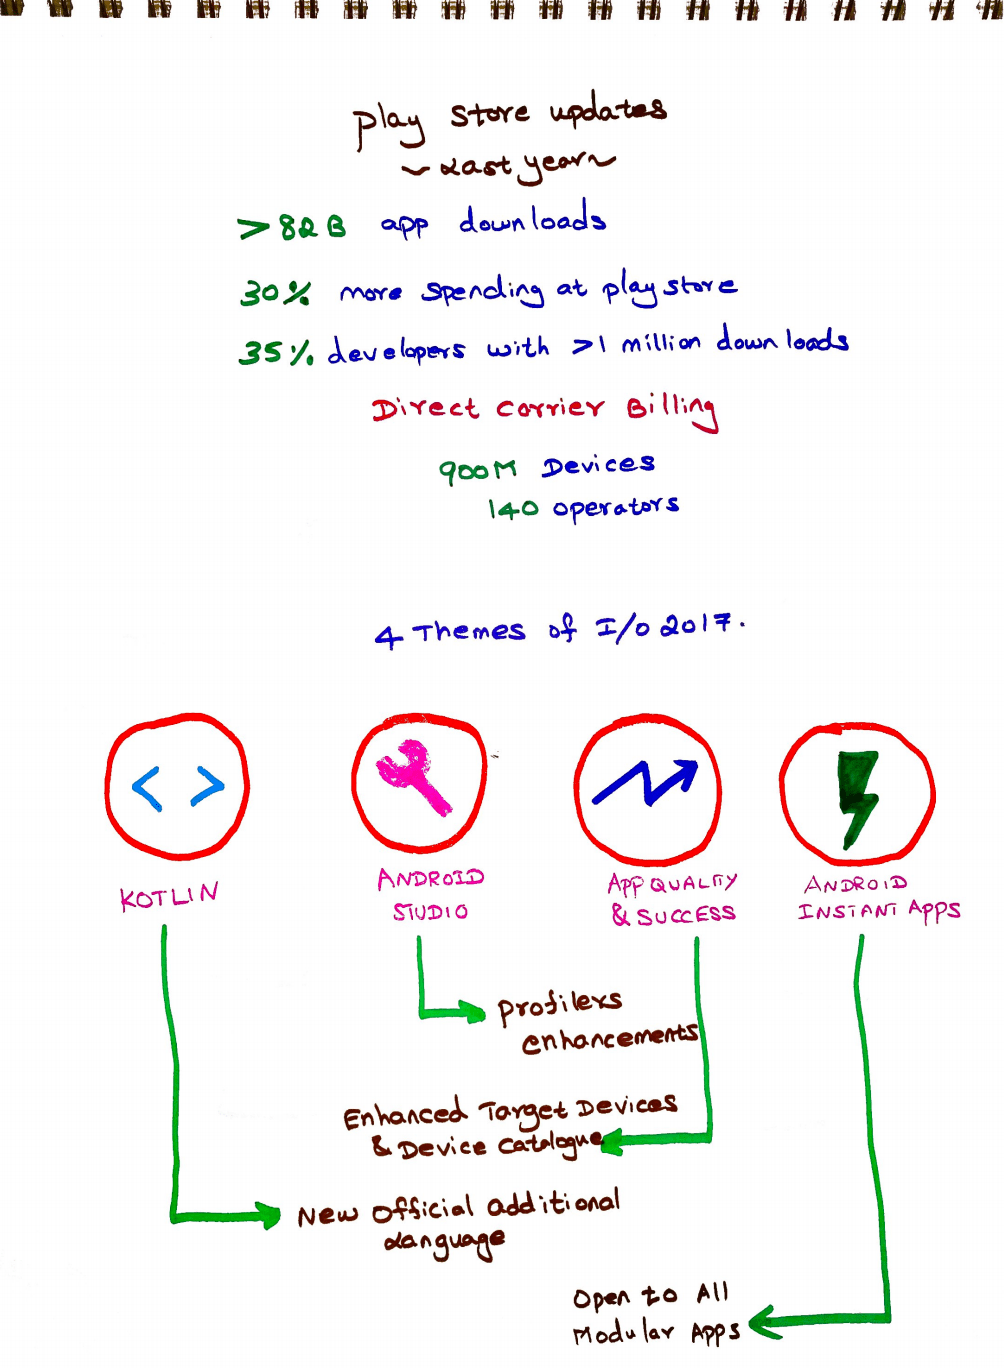 play store updates
~ Last year ~
>82B app downloads
30% more spending at play store
35% developers with >1 million downloads
Direct carrier Billing
900M Devices
140 operators
4 Themes of I/O 2017.
< >
KOTLIN
ANDROID
STUDIO
APP QUALITY
& SUCCESS
ANDROID
INSTANT APPS
Profilers
enhancements
Enhanced Target Devices
& Device Catalogue
New official additional
Language
Open to All
Modular Apps